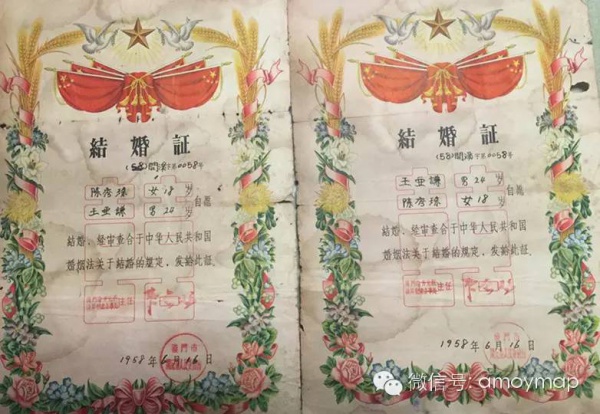 結婚証
(58)開字第0058号
陈秀瑧 女18岁 自愿
王亚謙 男24岁
結婚、経审查合于中华人民共和国
婚姻法关于結婚的規定,发給此証
主任
厦門市
1958年6月16日
結婚証
(58)開字第0058号
王亚謙 男24岁 自愿
陈秀瑧 女18岁
結婚、経审查合于中华人民共和国
婚姻法关于結婚的規定,发給此証
主任
厦門市
1958年6月16日
微信号: amoymap